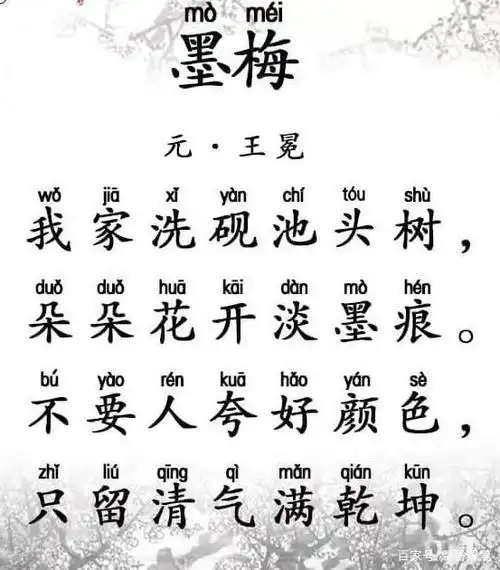 mò méi
墨梅
元·王冕
wǒ jiā xǐ yàn chí tóu shù
我家洗砚池头树，
duǒ duǒ huā kāi dàn mò hén
朵朵花开淡墨痕。
bú yào rén kuā hǎo yán sè
不要人夸好颜色，
zhǐ liú qīng qì mǎn qián kūn
只留清气满乾坤。
百家号